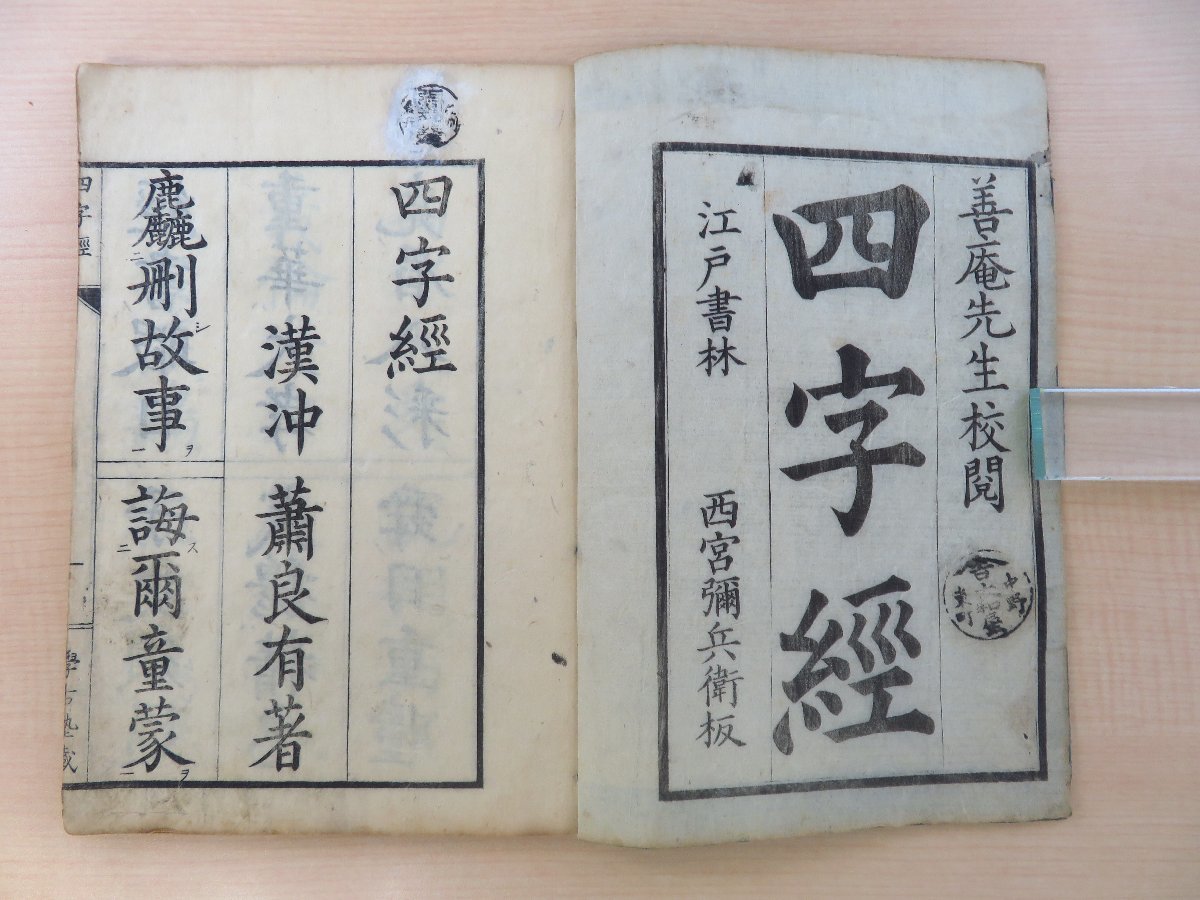 善庵先生校閲
四字經
江戸書林 西宮彌兵衛板
四字經
漢冲 蕭良有著
麤刪故事 誨爾童蒙
ニ シ ヲ 一
ス ニ ヲ 二
四字經